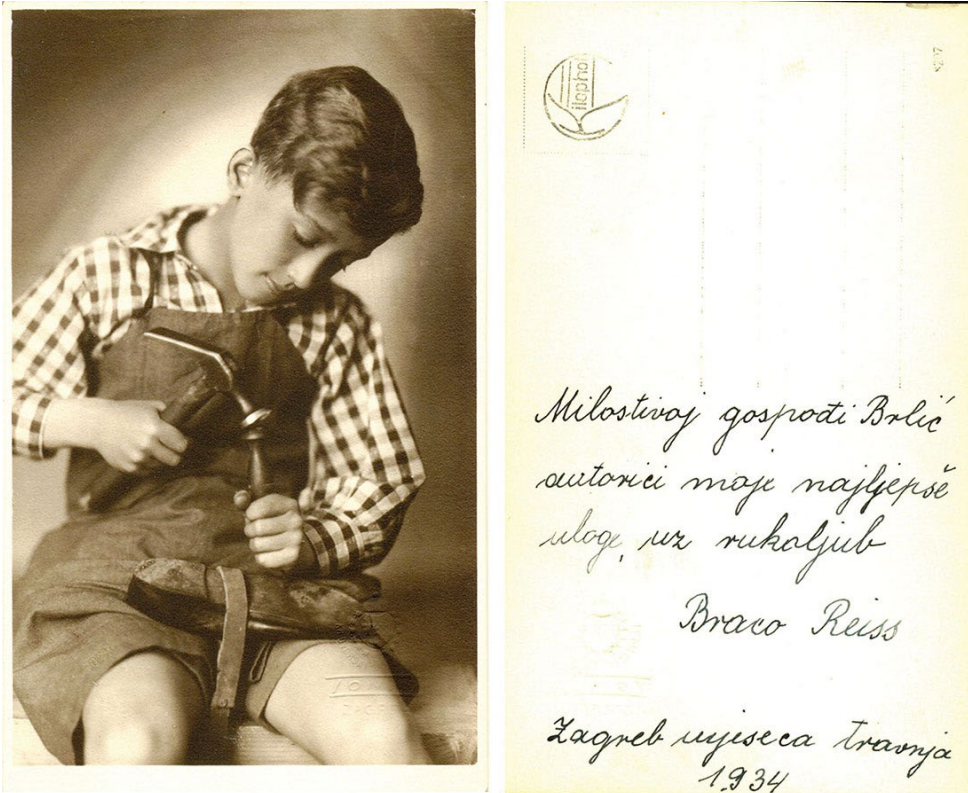 ilophot
Milostivoj gospođi Brlić
autorici moje najljepše
uloge, uz rukoljub
Braco Reiss
Zagreb mjeseca travnja
1934